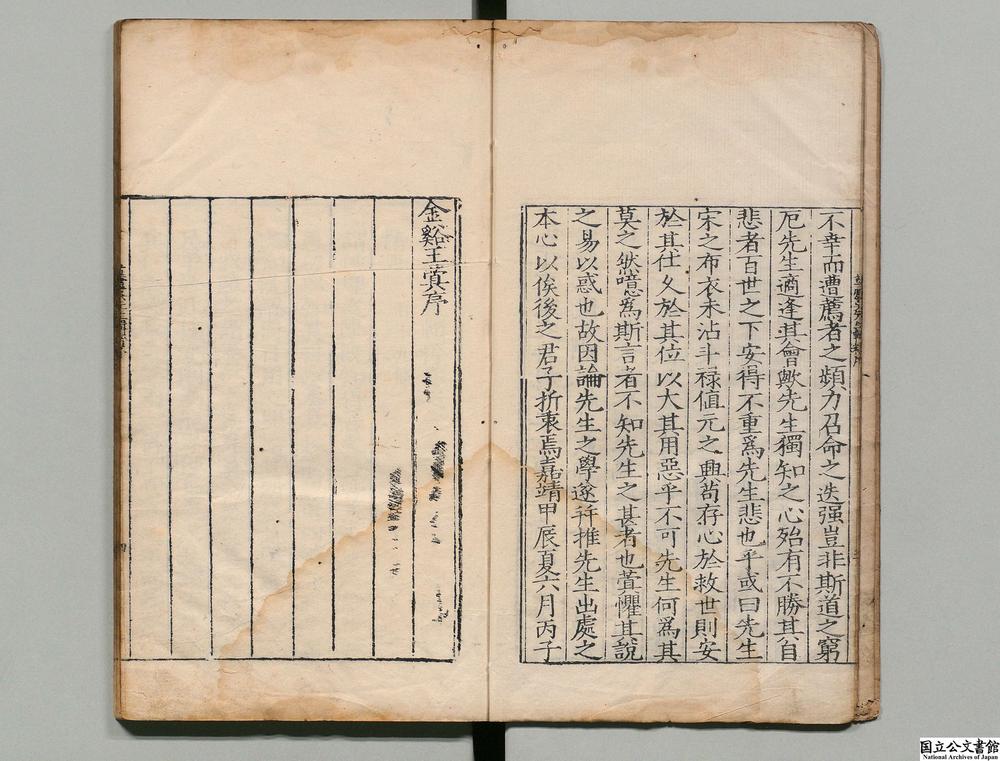 不幸而遭薦者之頻力召命之迭强豈非斯道之窮
厄先生適逢其會歟先生獨知之心殆有不勝其自
悲者百世之下安得不重爲先生悲也乎或曰先生
宋之布衣未沾斗禄值元之興苟存心於救世則安
於其仕久於其位以大其用惡乎不可先生何爲其
莫之然噫爲斯言者不知先生之甚者也蓂懼其説
之易以惑也故因論先生之學遂并推先生出處之
本心以俟後之君子折衷焉嘉靖甲辰夏六月丙子
金谿王蓂序
国立公文書館
National Archives of Japan